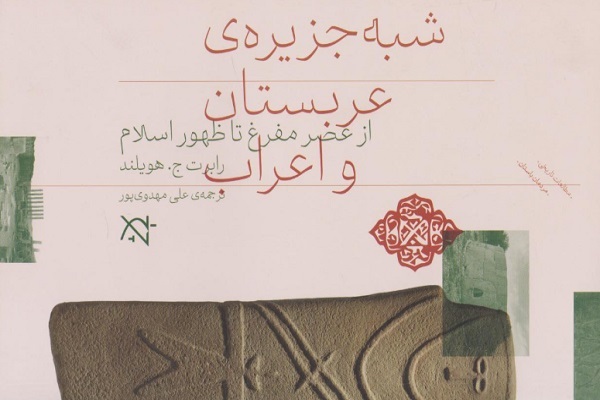 شبه جزیره‌ی
عربستان
و اعراب
از عصر مفرغ تا ظهور اسلام
رابرت ج. هویلند
ترجمه‌ی علی مهدوی‌پور